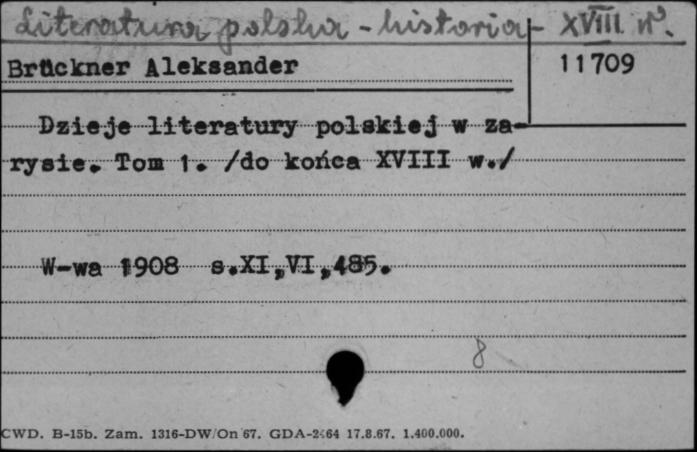 Literatura polska - historia - XVIII w.
Brückner Aleksander
11709
Dzieje literatury polskiej w za-
rysie. Tom 1. /do końca XVIII w./
W-wa 1908 s.XI,VI,485.
8
CWD. B-15b. Zam. 1316-DW/On 67. GDA-2464 17.8.67. 1.400.000.